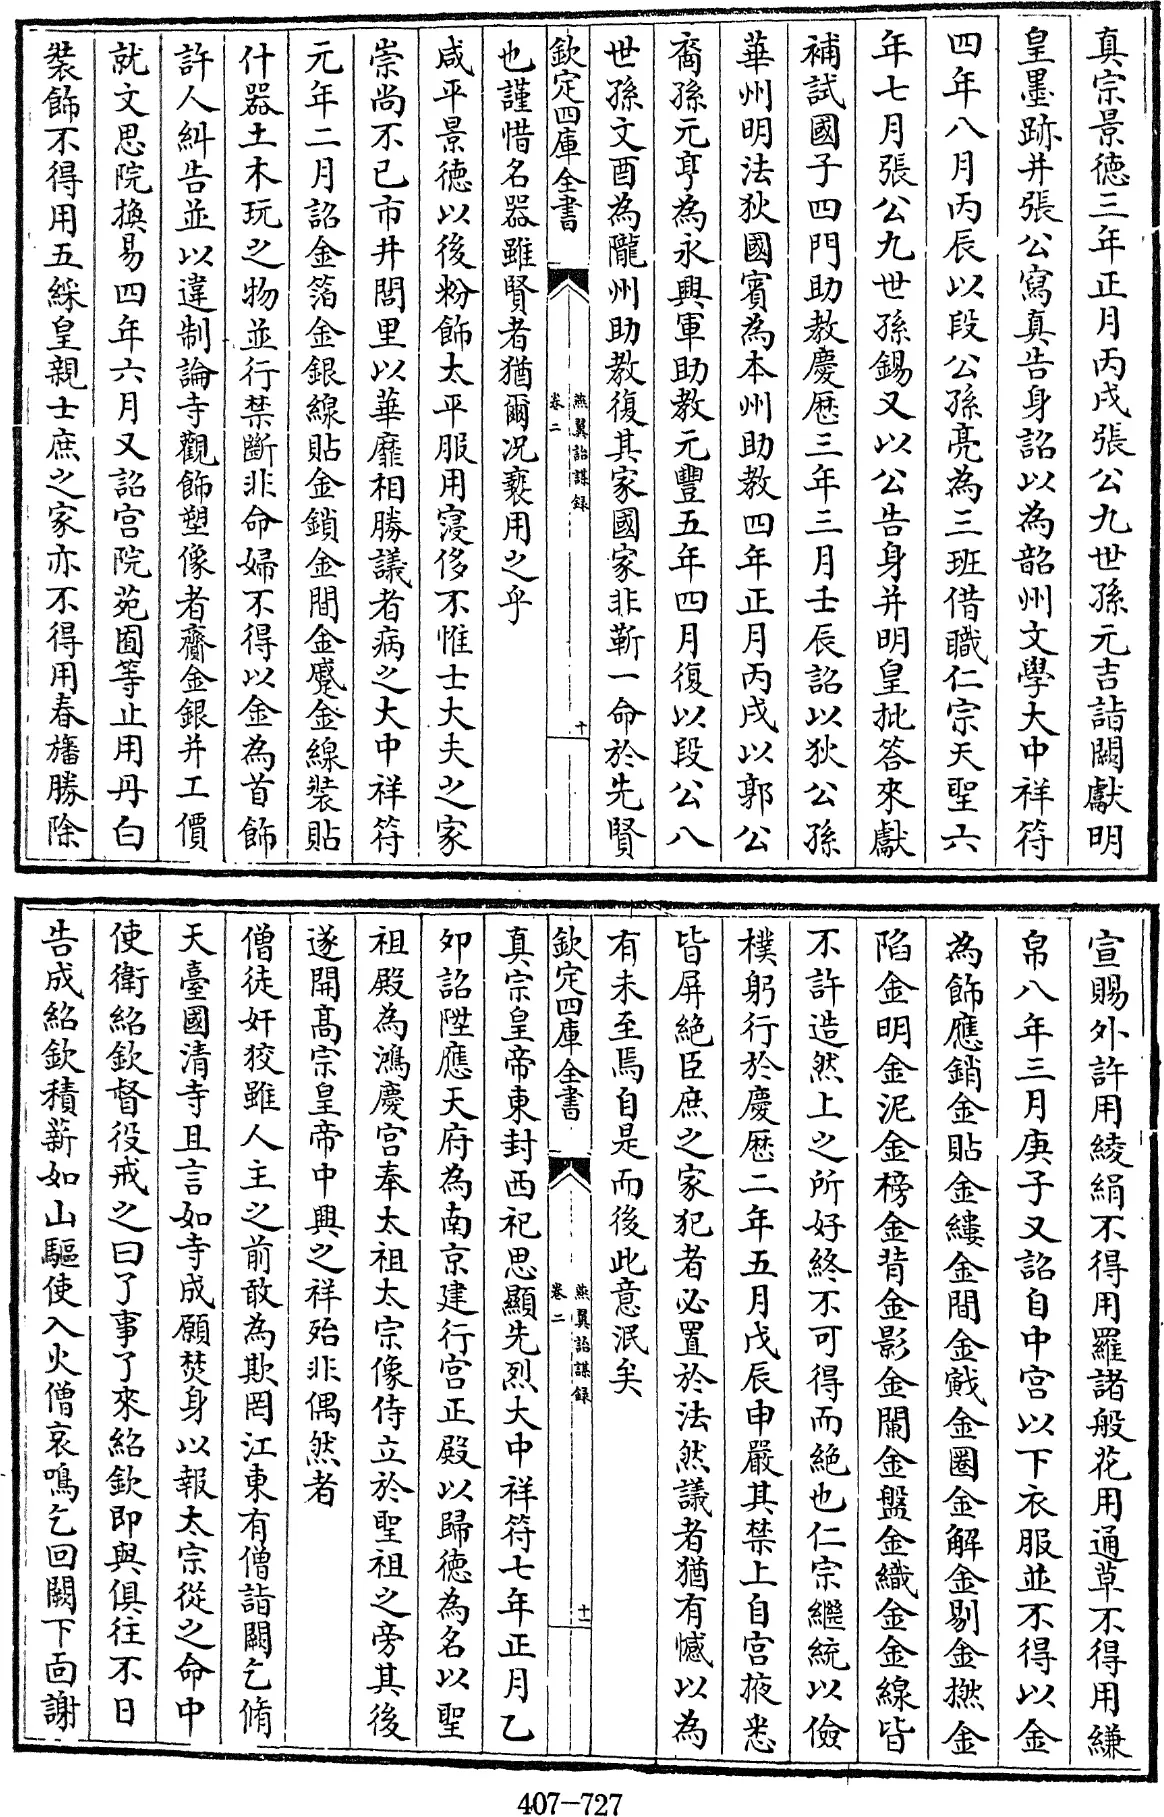 真宗景徳三年正月丙戌張公九世孫元吉詣闕獻明
皇墨跡并張公寫真告身詔以為韶州文學大中祥符
四年八月丙辰以段公孫亮為三班借職仁宗天聖六
年七月張公九世孫錫又以公告身并明皇批答來獻
補試國子四門助教慶厯三年三月壬辰詔以狄公孫
華州明法狄國賓為本州助教四年正月丙戌以郭公
裔孫元亨為永興軍助教元豐五年四月復以段公八
世孫文酉為隴州助教復其家國家非靳一命於先賢
欽定四庫全書
燕翼詒謀録
卷二
十
也謹惜名器雖賢者猶爾况褻用之乎
咸平景徳以後粉飾太平服用寖侈不惟士大夫之家
崇尚不已市井閭里以華靡相勝議者病之大中祥符
元年二月詔金箔金銀線貼金銷金間金蹙金線裝貼
什器土木玩之物並行禁斷非命婦不得以金為首飾
許人糾告並以違制論寺觀飾塑像者齎金銀并工價
就文思院換易四年六月又詔宫院苑囿等止用丹白
裝飾不得用五綵皇親士庶之家亦不得用春旛勝除
宣賜外許用綾絹不得用羅諸般花用通草不得用縑
帛八年三月庚子又詔自中宫以下衣服並不得以金
為飾應銷金貼金縷金間金戭金圈金解金剔金撚金
陷金明金泥金榜金背金影金闌金盤金織金金線皆
不許造然上之所好終不可得而絶也仁宗繼統以儉
樸躬行於慶厯二年五月戊辰申嚴其禁上自宫掖悉
皆屏絶臣庶之家犯者必置於法然議者猶有憾以為
有未至焉自是而後此意泯矣
欽定四庫全書
燕翼詒謀録
卷二
十一
真宗皇帝東封西祀思顯先烈大中祥符七年正月乙
夘詔陞應天府為南京建行宫正殿以歸徳為名以聖
祖殿為鴻慶宫奉太祖太宗像侍立於聖祖之旁其後
遂開髙宗皇帝中興之祥殆非偶然者
僧徒奸狡雖人主之前敢為欺罔江東有僧詣闕乞脩
天臺國清寺且言如寺成願焚身以報太宗從之命中
使衛紹欽督役戒之曰了事了來紹欽即與俱往不日
告成紹欽積薪如山驅使入火僧哀鳴乞回闕下面謝
407-727